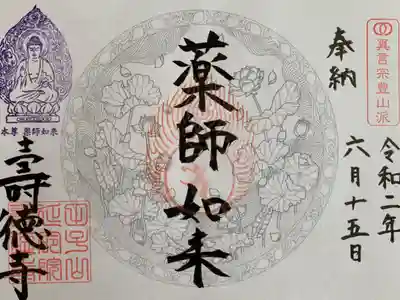 真言宗豊山派
奉納
令和二年
六月十五日
薬師如来
本尊 薬師如来
壽徳寺